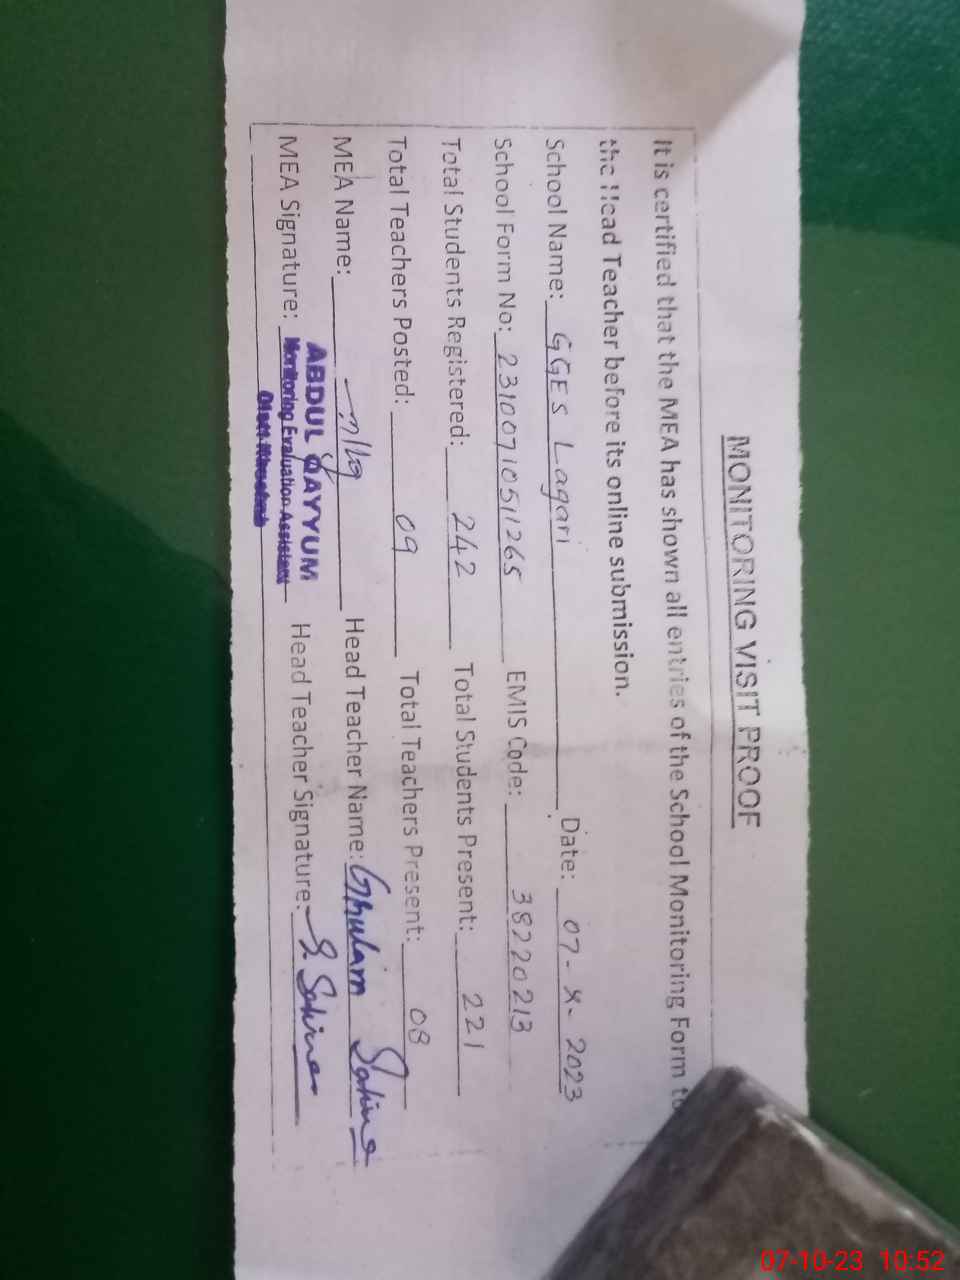 MONITORING VISIT PROOF
It is certified that the MEA has shown all entries of the School Monitoring Form to
the Head Teacher before its online submission.
School Name: GGES Lagari Date: 07-X-2023
School Form No: 2310071051​1265 EMIS Code: 38220213
Total Students Registered: 242 Total Students Present: 221
Total Teachers Posted: 09 Total Teachers Present: 08
MEA Name: Head Teacher Name: Ghulam Sakina
MEA Signature: ABDUL QAYYUM Head Teacher Signature: G Sakina
Monitoring Evaluation Assistant
Distt
07-10-23 10:52